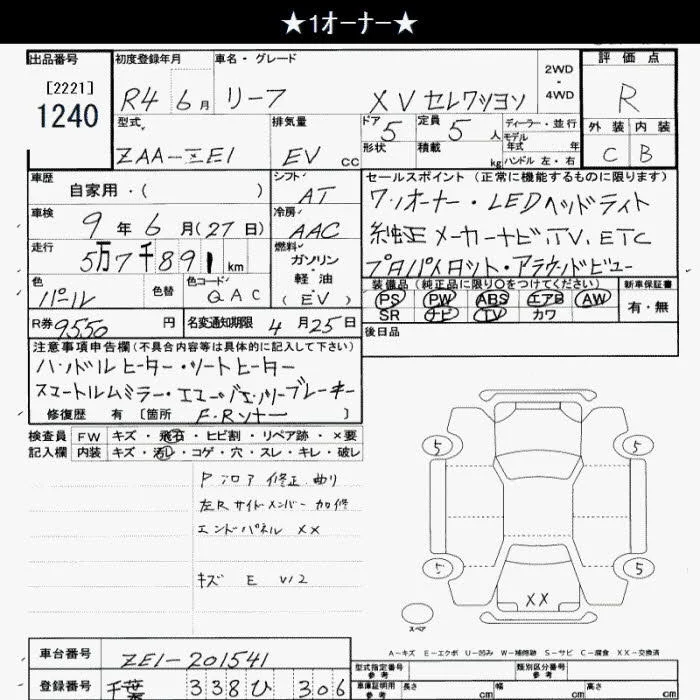 ★1オーナー★
出品番号
[2221]
1240
初度登録年月
R4 6月
車名・グレード
リーフ XVセレクション
2WD
・
4WD
評価点
R
外装 内装
C B
型式
ZAA-ZE1
排気量
EV cc
ドア 5
形状
定員 5 人
積載 kg
ディーラー・並行
モデル
年式 年
ハンドル 左・右
車歴
自家用・( )
シフト
AT
セールスポイント (正常に機能するものに限ります)
ワンオーナー・LEDヘッドライト
純正メーカーナビ,TV,ETC
プロパイロット・アラウンドビュー
車検
9年6月(27日)
冷房
AAC
走行
5万7千891km
燃料
ガソリン
・
軽油
(EV)
色
パール
色替
色コード
QAC
装備品(純正品に限り○をつけてください)
PS PW ABS エアB AW
SR ナビ TV カワ
新車保証書
有・無
R券 9550円
名変通知期限 4月25日
後日品
注意事項申告欄(不具合内容等は具体的に記入して下さい)
ハンドルヒーター・シートヒーター
スマートルムミラー・エマージェンシーブレーキー
修復歴 有 [箇所 F.Rンナー ]
検査員 FW キズ・飛石・ヒビ割・リペア跡・×要
記入欄 内装 キズ・汚れ・コゲ・穴・スレ・キレ・破レ
Pフロア 修正 曲り
左Rサイドメンバー 加修
エンドパネル XX
キズ E
5 5
5 5
XX
スペア
A-キズ E-エクボ U-凹み W-補修跡 S-サビ C-腐食 XX-交換済
車台番号 ZE1-201541
登録番号 千葉 338 ひ 306
型式指定番号
参考
類別区分番号
参考
車庫証明用
参考
長さ cm
幅 cm
高さ cm